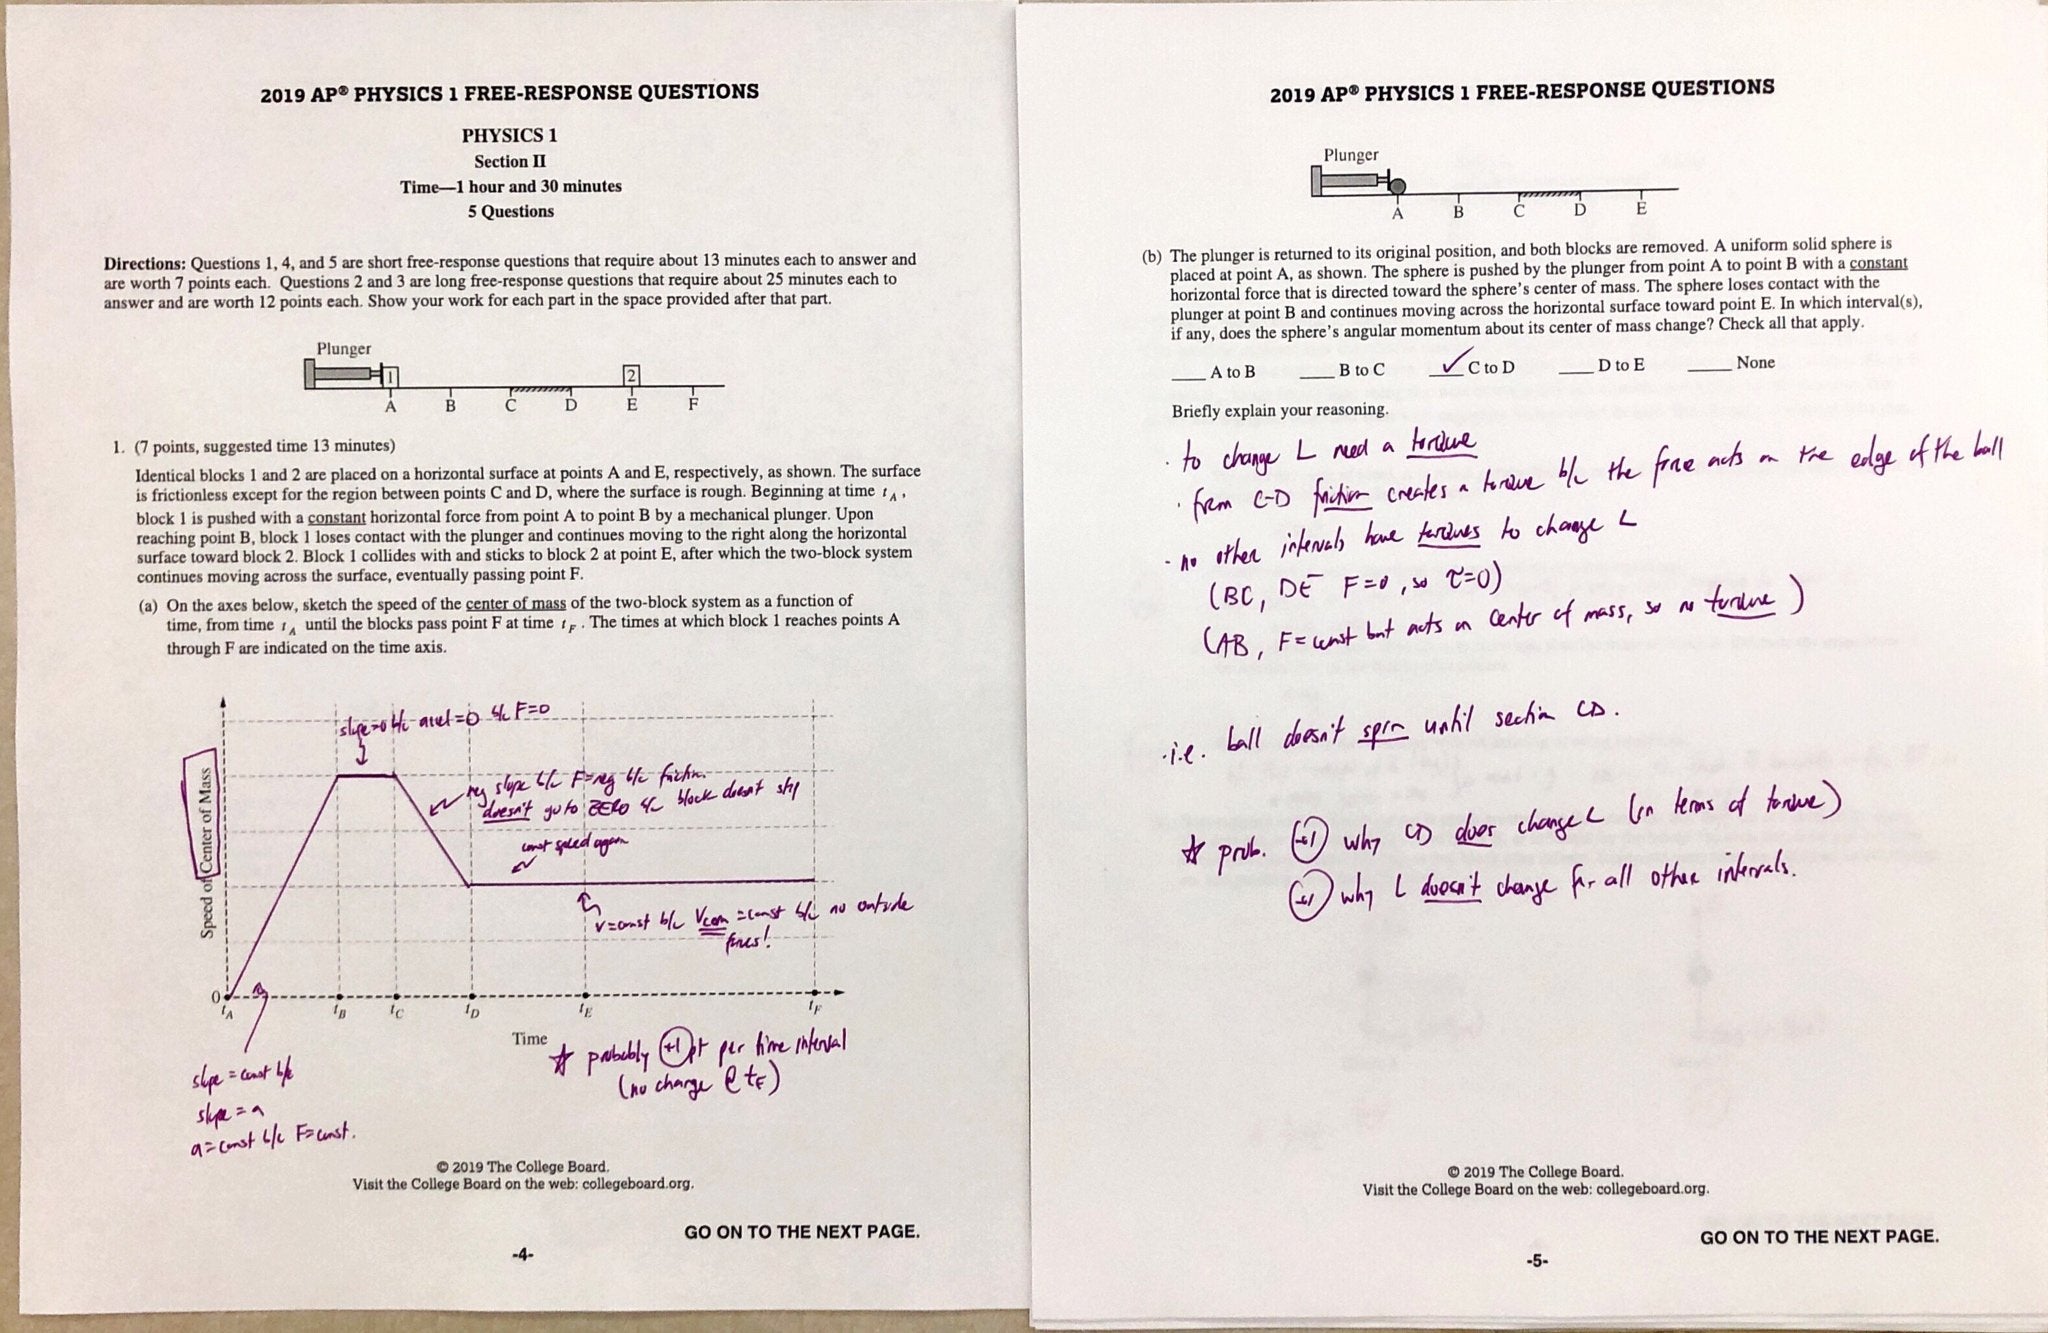 2019 AP® PHYSICS 1 FREE-RESPONSE QUESTIONS
PHYSICS 1
Section II
Time—1 hour and 30 minutes
5 Questions
Directions: Questions 1, 4, and 5 are short free-response questions that require about 13 minutes each to answer and
are worth 7 points each. Questions 2 and 3 are long free-response questions that require about 25 minutes each to
answer and are worth 12 points each. Show your work for each part in the space provided after that part.
Plunger
1 2
A B C D E F
1. (7 points, suggested time 13 minutes)
Identical blocks 1 and 2 are placed on a horizontal surface at points A and E, respectively, as shown. The surface
is frictionless except for the region between points C and D, where the surface is rough. Beginning at time tA,
block 1 is pushed with a constant horizontal force from point A to point B by a mechanical plunger. Upon
reaching point B, block 1 loses contact with the plunger and continues moving to the right along the horizontal
surface toward block 2. Block 1 collides with and sticks to block 2 at point E, after which the two-block system
continues moving across the surface, eventually passing point F.
(a) On the axes below, sketch the speed of the center of mass of the two-block system as a function of
time, from time tA until the blocks pass point F at time tF. The times at which block 1 reaches points A
through F are indicated on the time axis.
slope=0 b/c accel=0 b/c F=0
neg slope b/c F=neg b/c friction.
doesn't go to ZERO b/c block doesn't stop
const speed again
v=const b/c Vcom=const b/c no outside
forces!
Speed of Center of Mass
0
tA tB tC tD tE tF
Time
☆ probably +1 pt per time interval
(no change @ tE)
slope = const b/c
slope = a
a=const b/c F=const.
© 2019 The College Board.
Visit the College Board on the web: collegeboard.org.
GO ON TO THE NEXT PAGE.
-4-
2019 AP® PHYSICS 1 FREE-RESPONSE QUESTIONS
Plunger
A B C D E
(b) The plunger is returned to its original position, and both blocks are removed. A uniform solid sphere is
placed at point A, as shown. The sphere is pushed by the plunger from point A to point B with a constant
horizontal force that is directed toward the sphere's center of mass. The sphere loses contact with the
plunger at point B and continues moving across the horizontal surface toward point E. In which interval(s),
if any, does the sphere's angular momentum about its center of mass change? Check all that apply.
____ A to B ____ B to C ✓ C to D ____ D to E ____ None
Briefly explain your reasoning.
· to change L need a torque
· from C-D friction creates a torque b/c the force acts on the edge of the ball
· no other intervals have torques to change L
(BC, DE F=0, so τ=0)
(AB, F=const but acts on center of mass, so no torque)
· i.e. ball doesn't spin until section CD.
☆ prob. +1 why CD does change L (in terms of torque)
+1 why L doesn't change for all other intervals.
© 2019 The College Board.
Visit the College Board on the web: collegeboard.org.
GO ON TO THE NEXT PAGE.
-5-